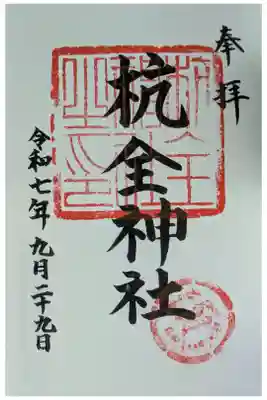 奉拝
杭全神社
令和七年九月二十九日